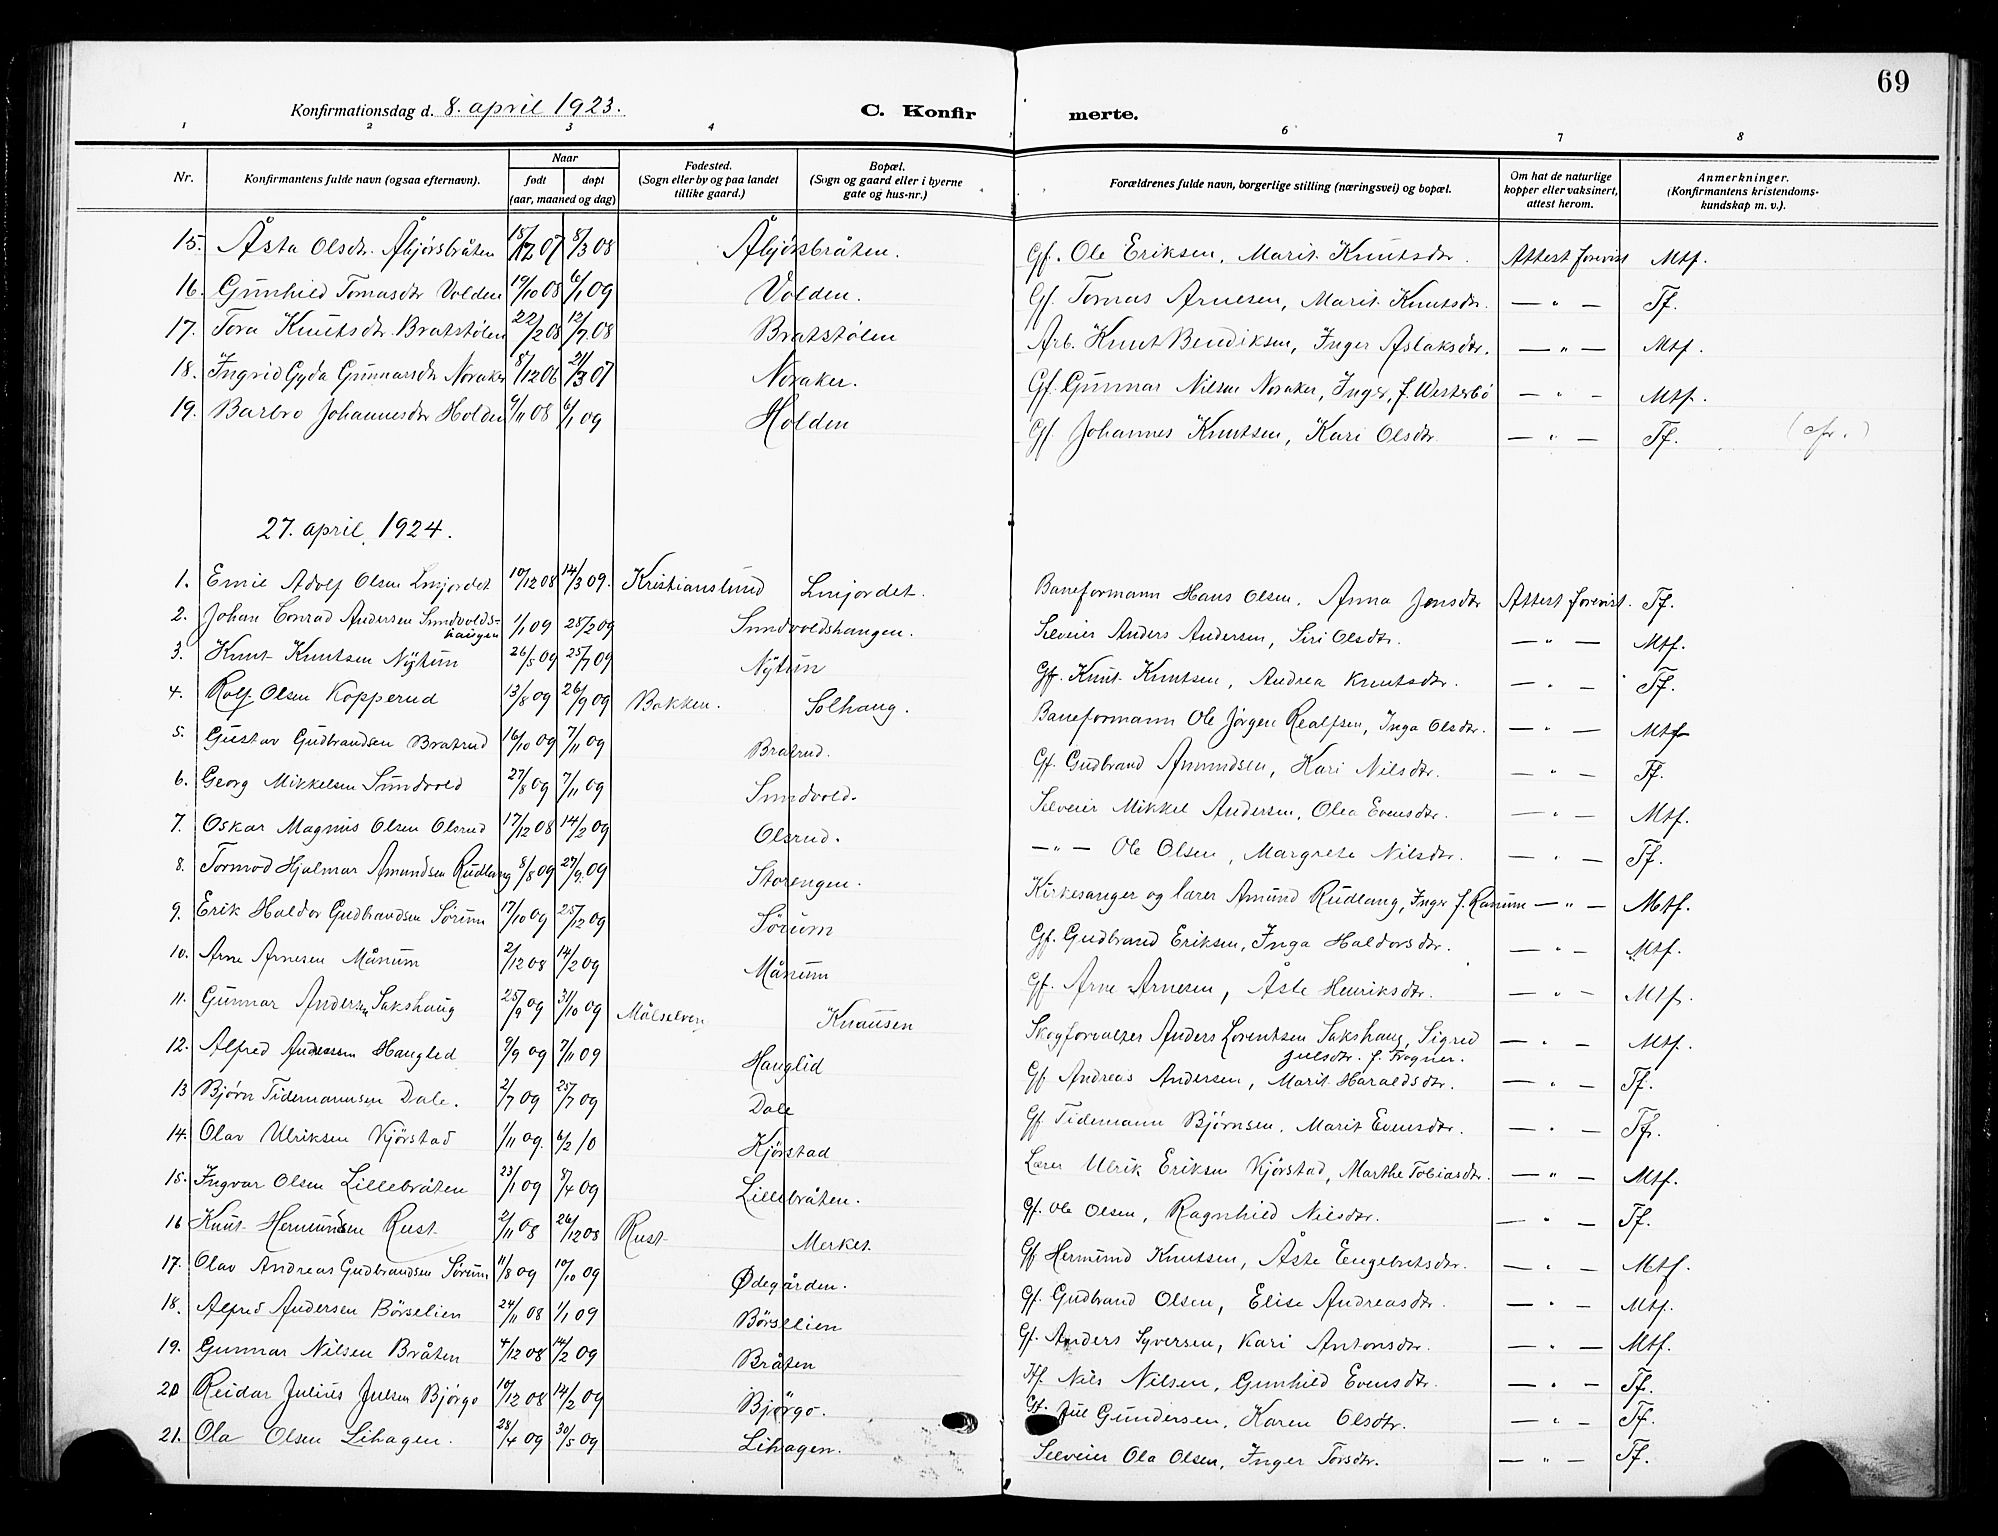 69
Konfirmationsdag d. 8. april 1923. C. Konfir merte.
1 2 3 4 6 7 8
Nr. Konfirmantens fulde navn (ogsaa efternavn). Naar født døpt (aar, maaned og dag) Fødested. (Sogn eller by og paa landet tillike gaard.) Bopæl. (Sogn og gaard eller i byerne gate og hus-nr.) Forældrenes fulde navn, borgerlige stilling (næringsvei) og bopæl. Om hat de naturlige kopper eller vaksinert, attest herom. Anmerkninger. (Konfirmantens kristendomskundskap m. v.).
15. Åsta Olsdtr. Åbjørsbråten 18/12 07 8/3 08 Åbjørsbråten. Gf. Ole Eriksen, Marit Knutsdtr. Attest forevist Mtf.
16. Gunhild Tomasdtr Volden 19/10 08 6/1 09 Volden. Gf. Tomas Arnesen, Marit Knutsdtr. — " — Tf.
17. Tora Knutsdtr. Bratstølen 22/2 08 12/7 08 Bratstølen Arb. Knut Bendiksen, Inger Aslaksdtr. — " — Mtf.
18. Ingrid Gyda Gunnarsdtr Noraker 8/12 06 21/3 07 Noraker. Gf. Gunnar Nilsen Noraker, Inger, f. Westerbø — " — Mtf.
19. Barbro Johannesdtr Holden 9/11 08 6/1 09 Holden Gf. Johannes Knutsen, Kari Olsdtr. — " — Tf. (cfr.)
27. april 1924.
1. Emil Adolf Olsen Linjordet 10/12 08 14/3 09. Kristianslund Linjordet. Baneformann Hans Olsen, Anna Jonsdtr Attest forevist. Tf.
2. Johan Conrad Andersen Sundvoldshaugen 1/1 09 28/2 09 Sundvoldshaugen. Selveier Anders Andersen, Siri Olsdtr. — " — Mtf.
3. Knut Knutsen Nytun 26/5 09 25/7 09 Nytun Gf. Knut Knutsen, Andrea Knutsdtr. — " — Tf.
4. Rolf Olsen Kopperud 13/8 09 26/9 09 Bakken. Solhaug. Baneformann Ole Jørgen Realfsen, Inga Olsdtr. — " — Mtf
5. Gustav Gudbrandsen Bratrud 16/10 09 7/11 09 Bratrud. Gf. Gudbrand Amundsen, Kari Nilsdtr. — " — Tf.
6. Georg Mikkelsen Sundvold 27/8 09 7/11 09 Sundvold. Selveier Mikkel Andersen, Olea Evensdtr. — " — Mtf.
7. Oskar Magnus Olsen Olsrud 17/12 08 14/2 09 Olsrud. — " — Ole Olsen, Margrete Nilsdtr. — " — Tf.
8. Tormod Hjalmar Amundsen Rudlang 8/8 09 27/9 09 Storengen. Kirkesanger og lærer Amund Rudlang, Inger f. Ranum — " — Mtf.
9. Erik Haldor Gudbrandsen Sørum 17/10 09 25/12 09 Sørum Gf. Gudbrand Eriksen, Inga Haldorsdtr. — " — Mtf.
10. Arne Arnesen Månum 2/12 08 14/2 09 Månum Gf. Arne Arnesen, Åste Henriksdtr. — " — Mtf.
11. Gunnar Andersen Sakshaug 25/9 09 31/10 09 Målselven Knausen Skogforvalter Anders Lorentsen Sakshaug, Sigred Julsdtr. f. Frogner. — " — Mtf.
12. Alfred Andreassen Hauglid 9/9 09 7/11 09 Hauglid Gf. Andreas Andersen, Marit Haraldsdtr. — " — Tf.
13 Bjørn Tidemannsen Dale. 2/7 09 25/7 09 Dale Gf. Tidemann Bjørnsen, Marit Evensdtr. — " — Tf.
14. Olav Ulriksen Kjørstad 1/11 09. 6/2 10 Kjørstad Lærer Ulrik Eriksen Kjørstad, Marthe Tobiasdtr. — " — Mtf.
15. Ingvar Olsen Lillebråten 23/1 09 8/4 09 Lillebråten. Gf. Ole Olsen, Ragnhild Nilsdtr. — " — Tf.
16 Knut Hermundsen Rust 2/11 08 26/12 08 Rust Merket Gf Hermund Knutsen, Åste Engebretsdtr. — " — Mtf.
17. Olav Andreas Gudbrandsen Sørum 11/8 09 10/10 09 Ødegården. Gf. Gudbrand Olsen, Elise Andreasdtr. — " — Mtf.
18. Alfred Andersen Børselien 24/11 08 1/1 09 Børselien Gf. Anders Syversen, Kari Antonsdtr. — " — Mtf.
19. Gunnar Nilsen Bråten 4/12 08 14/2 09 Bråten Nils Nilsen, Gunhild Evensdtr. — " — Tf.
20 Reidar Julius Julsen Bjørgo 10/12 08 14/2 09 Bjørgo. Gf. Jul Gundersen, Karen Olsdtr. — " — Tf.
21. Ola Olsen Lihagen. 28/4 09 30/5 09 Lihagen. Selveier Ola Olsen, Inger Torsdtr. — " — Tf.